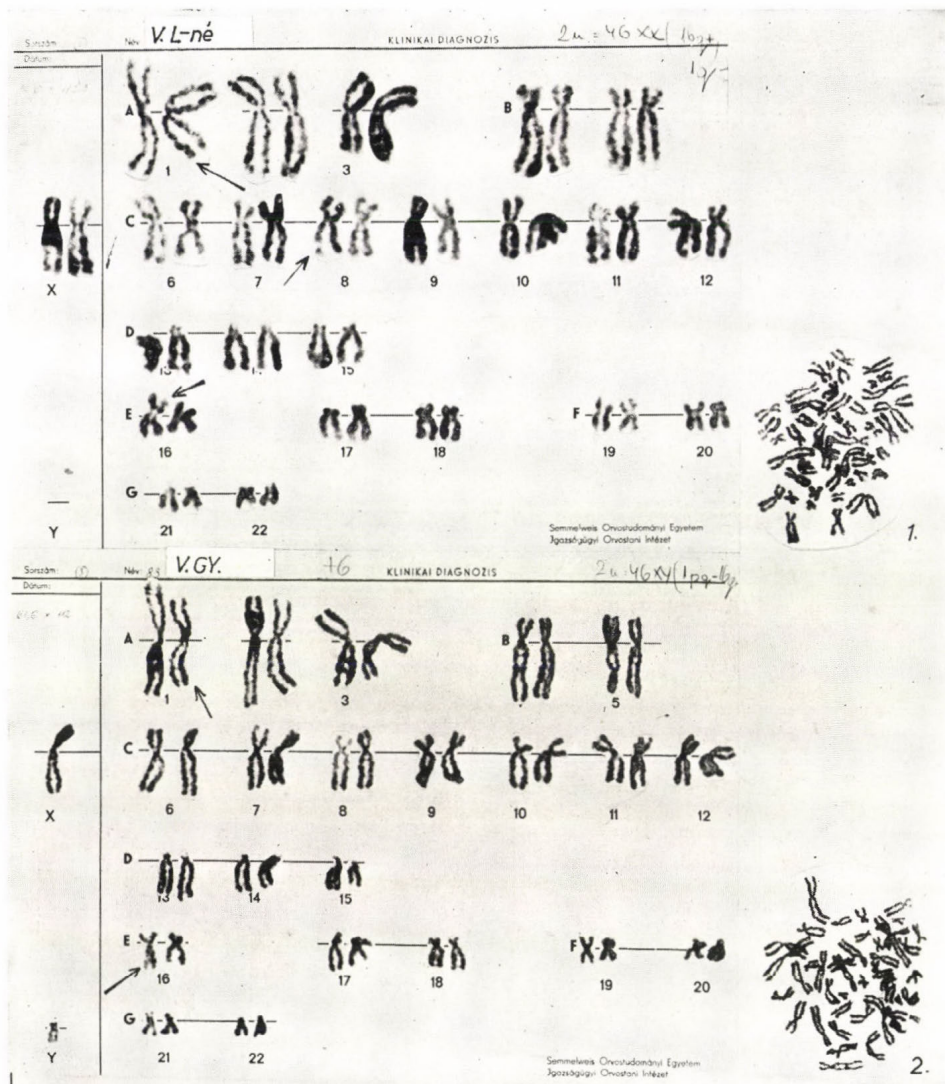 Sorszám: Név: V. L-né KLINIKAI DIAGNOZIS 2n = 46 XX( 16q+
Dátum: 1q-
A B
1 3
C
X 6 7 8 9 10 11 12
D
13 15
E F
16 17 18 19 20
G
Y 21 22
Semmelweis Orvostudományi Egyetem
Jgazságügyi Orvostani Intézet
1.
Sorszám: Név: V. GY. +G KLINIKAI DIAGNOZIS 2n=46XY(1pq-16q
Dátum:
A B
1 3 5
C
X 6 7 8 9 10 11 12
D
13 14 15
E F
16 17 18 19 20
G
Y 21 22
Semmelweis Orvostudományi Egyetem
Jgazságügyi Orvostani Intézet
2.